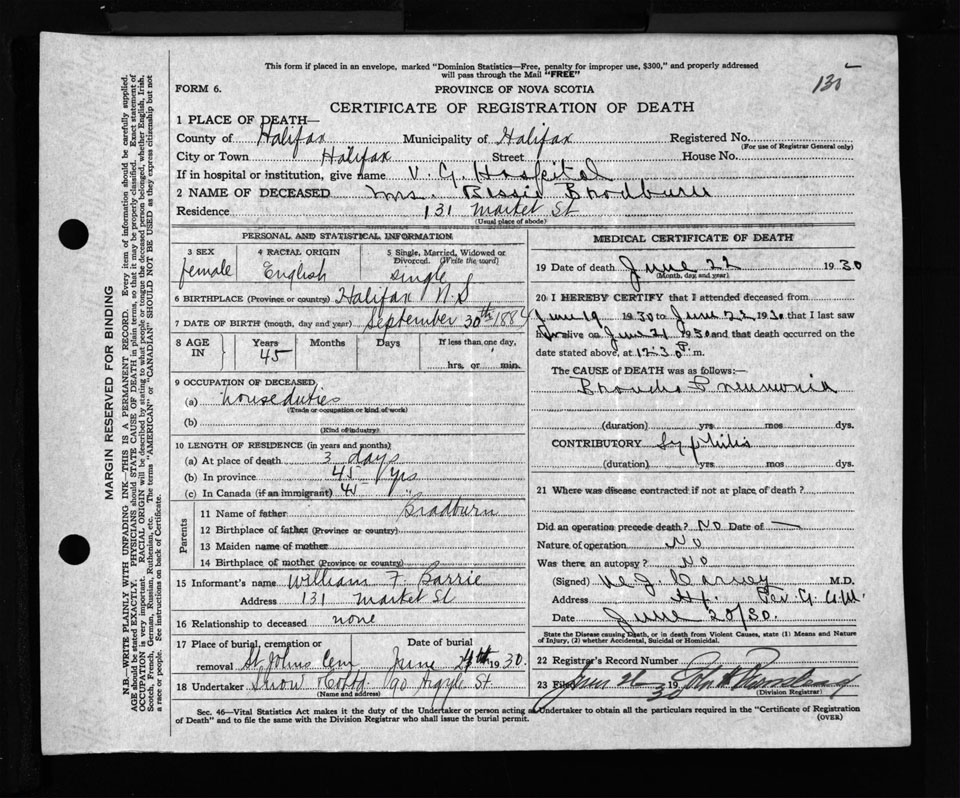 This form if placed in an envelope, marked "Dominion Statistics—Free, penalty for improper use, $300," and properly addressed
will pass through the Mail "FREE"
135
FORM 6.
PROVINCE OF NOVA SCOTIA
CERTIFICATE OF REGISTRATION OF DEATH
1 PLACE OF DEATH—
County of Halifax Municipality of Halifax Registered No.
(For use of Registrar General only)
City or Town Halifax Street House No.
If in hospital or institution, give name V. G. Hospital
2 NAME OF DECEASED Mrs. Bessie Bradburn
Residence 131 Market St
(Usual place of abode)
PERSONAL AND STATISTICAL INFORMATION
3 SEX 4 RACIAL ORIGIN 5 Single, Married, Widowed or Divorced. (Write the word)
female English single
6 BIRTHPLACE (Province or country) Halifax N.S
7 DATE OF BIRTH (month, day and year) September 30th 1884
8 AGE IN Years Months Days If less than one day,
45 hrs. or min.
9 OCCUPATION OF DECEASED
(a) house duties
(Trade or occupation or kind of work)
(b)
(Kind of industry)
10 LENGTH OF RESIDENCE (in years and months)
(a) At place of death 3 days
(b) In province 45 yrs
(c) In Canada (if an immigrant) 45 "
Parents
11 Name of father Bradburn
12 Birthplace of father (Province or country)
13 Maiden name of mother
14 Birthplace of mother (Province or country)
15 Informant's name William F. Barrie
Address 131 Market St
16 Relationship to deceased none
17 Place of burial, cremation or Date of burial
removal St Johns Cem June 24th 1930.
18 Undertaker Snow & Co Ltd 90 Argyle St.
(Name and address)
MEDICAL CERTIFICATE OF DEATH
19 Date of death June 22 1930
(Month, day and year)
20 I HEREBY CERTIFY that I attended deceased from
June 19 1930 to June 22 1930 that I last saw
her alive on June 21 1930 and that death occurred on the
date stated above, at 12:30 P. m.
The CAUSE of DEATH was as follows:—
Broncho Pneumonia
(duration) yrs mos dys.
CONTRIBUTORY Syphilis
(duration) yrs mos dys.
21 Where was disease contracted if not at place of death?
Did an operation precede death? No Date of —
Nature of operation No
Was there an autopsy? No
(Signed) M.D.
Address
Date June 20/30.
State the Disease causing Death, or in death from Violent Causes, state (1) Means and Nature
of Injury, (2) whether Accidental, Suicidal or Homicidal.
22 Registrar's Record Number
23 Filed June 26 1930 John
(Division Registrar)
Sec. 46—Vital Statistics Act makes it the duty of the Undertaker or person acting as Undertaker to obtain all the particulars required in the "Certificate of Registration
of Death" and to file the same with the Division Registrar who shall issue the burial permit.
(OVER)
MARGIN RESERVED FOR BINDING
N.B.—WRITE PLAINLY WITH UNFADING INK—THIS IS A PERMANENT RECORD. Every item of information should be carefully supplied.
AGE should be stated EXACTLY. PHYSICIANS should STATE CAUSE OF DEATH in plain terms, so that it may be properly classified. Exact statement of
OCCUPATION is very important. RACIAL ORIGIN will be described by stating to what people or tongue the deceased person belonged, whether English, Irish,
Scotch, French, German, Russian, Ruthenian, etc. The terms "AMERICAN" or "CANADIAN" SHOULD NOT BE USED as they express citizenship but not
a race or people. See instructions on back of Certificate.